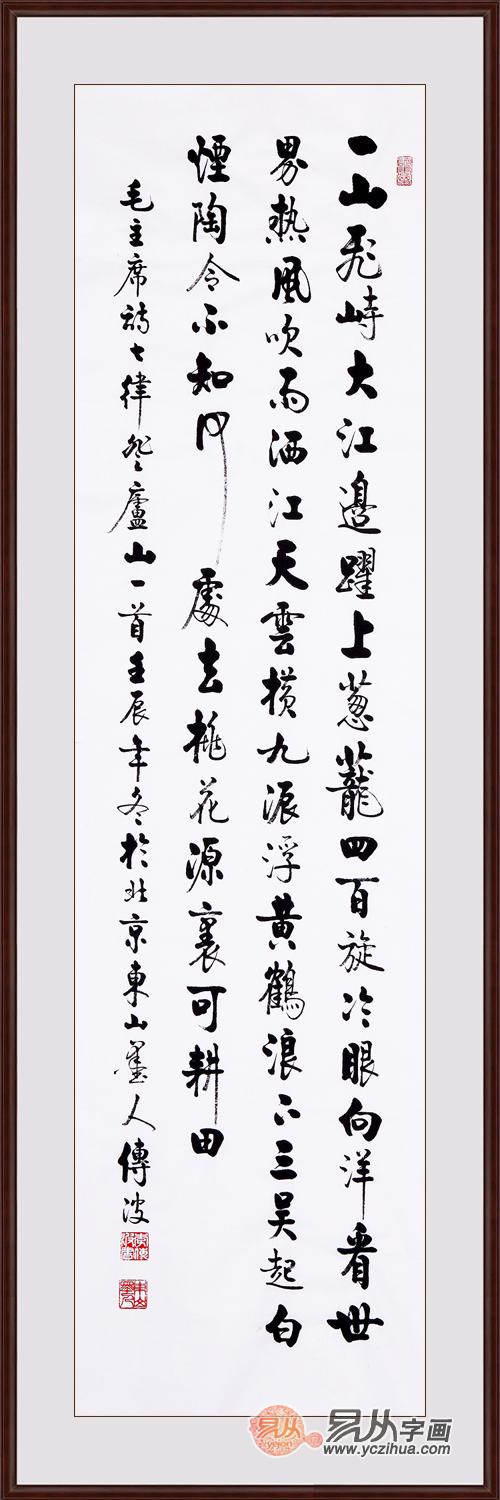 一山飛峙大江邊躍上蔥蘢四百旋冷眼向洋看世
界熱風吹雨洒江天雲橫九派浮黄鶴浪下三吴起白
煙陶令不知何處去桃花源裏可耕田
毛主席詩七律登廬山一首壬辰年冬於北京東山墨人傳波
易从 易从字画
www.yczihua.com